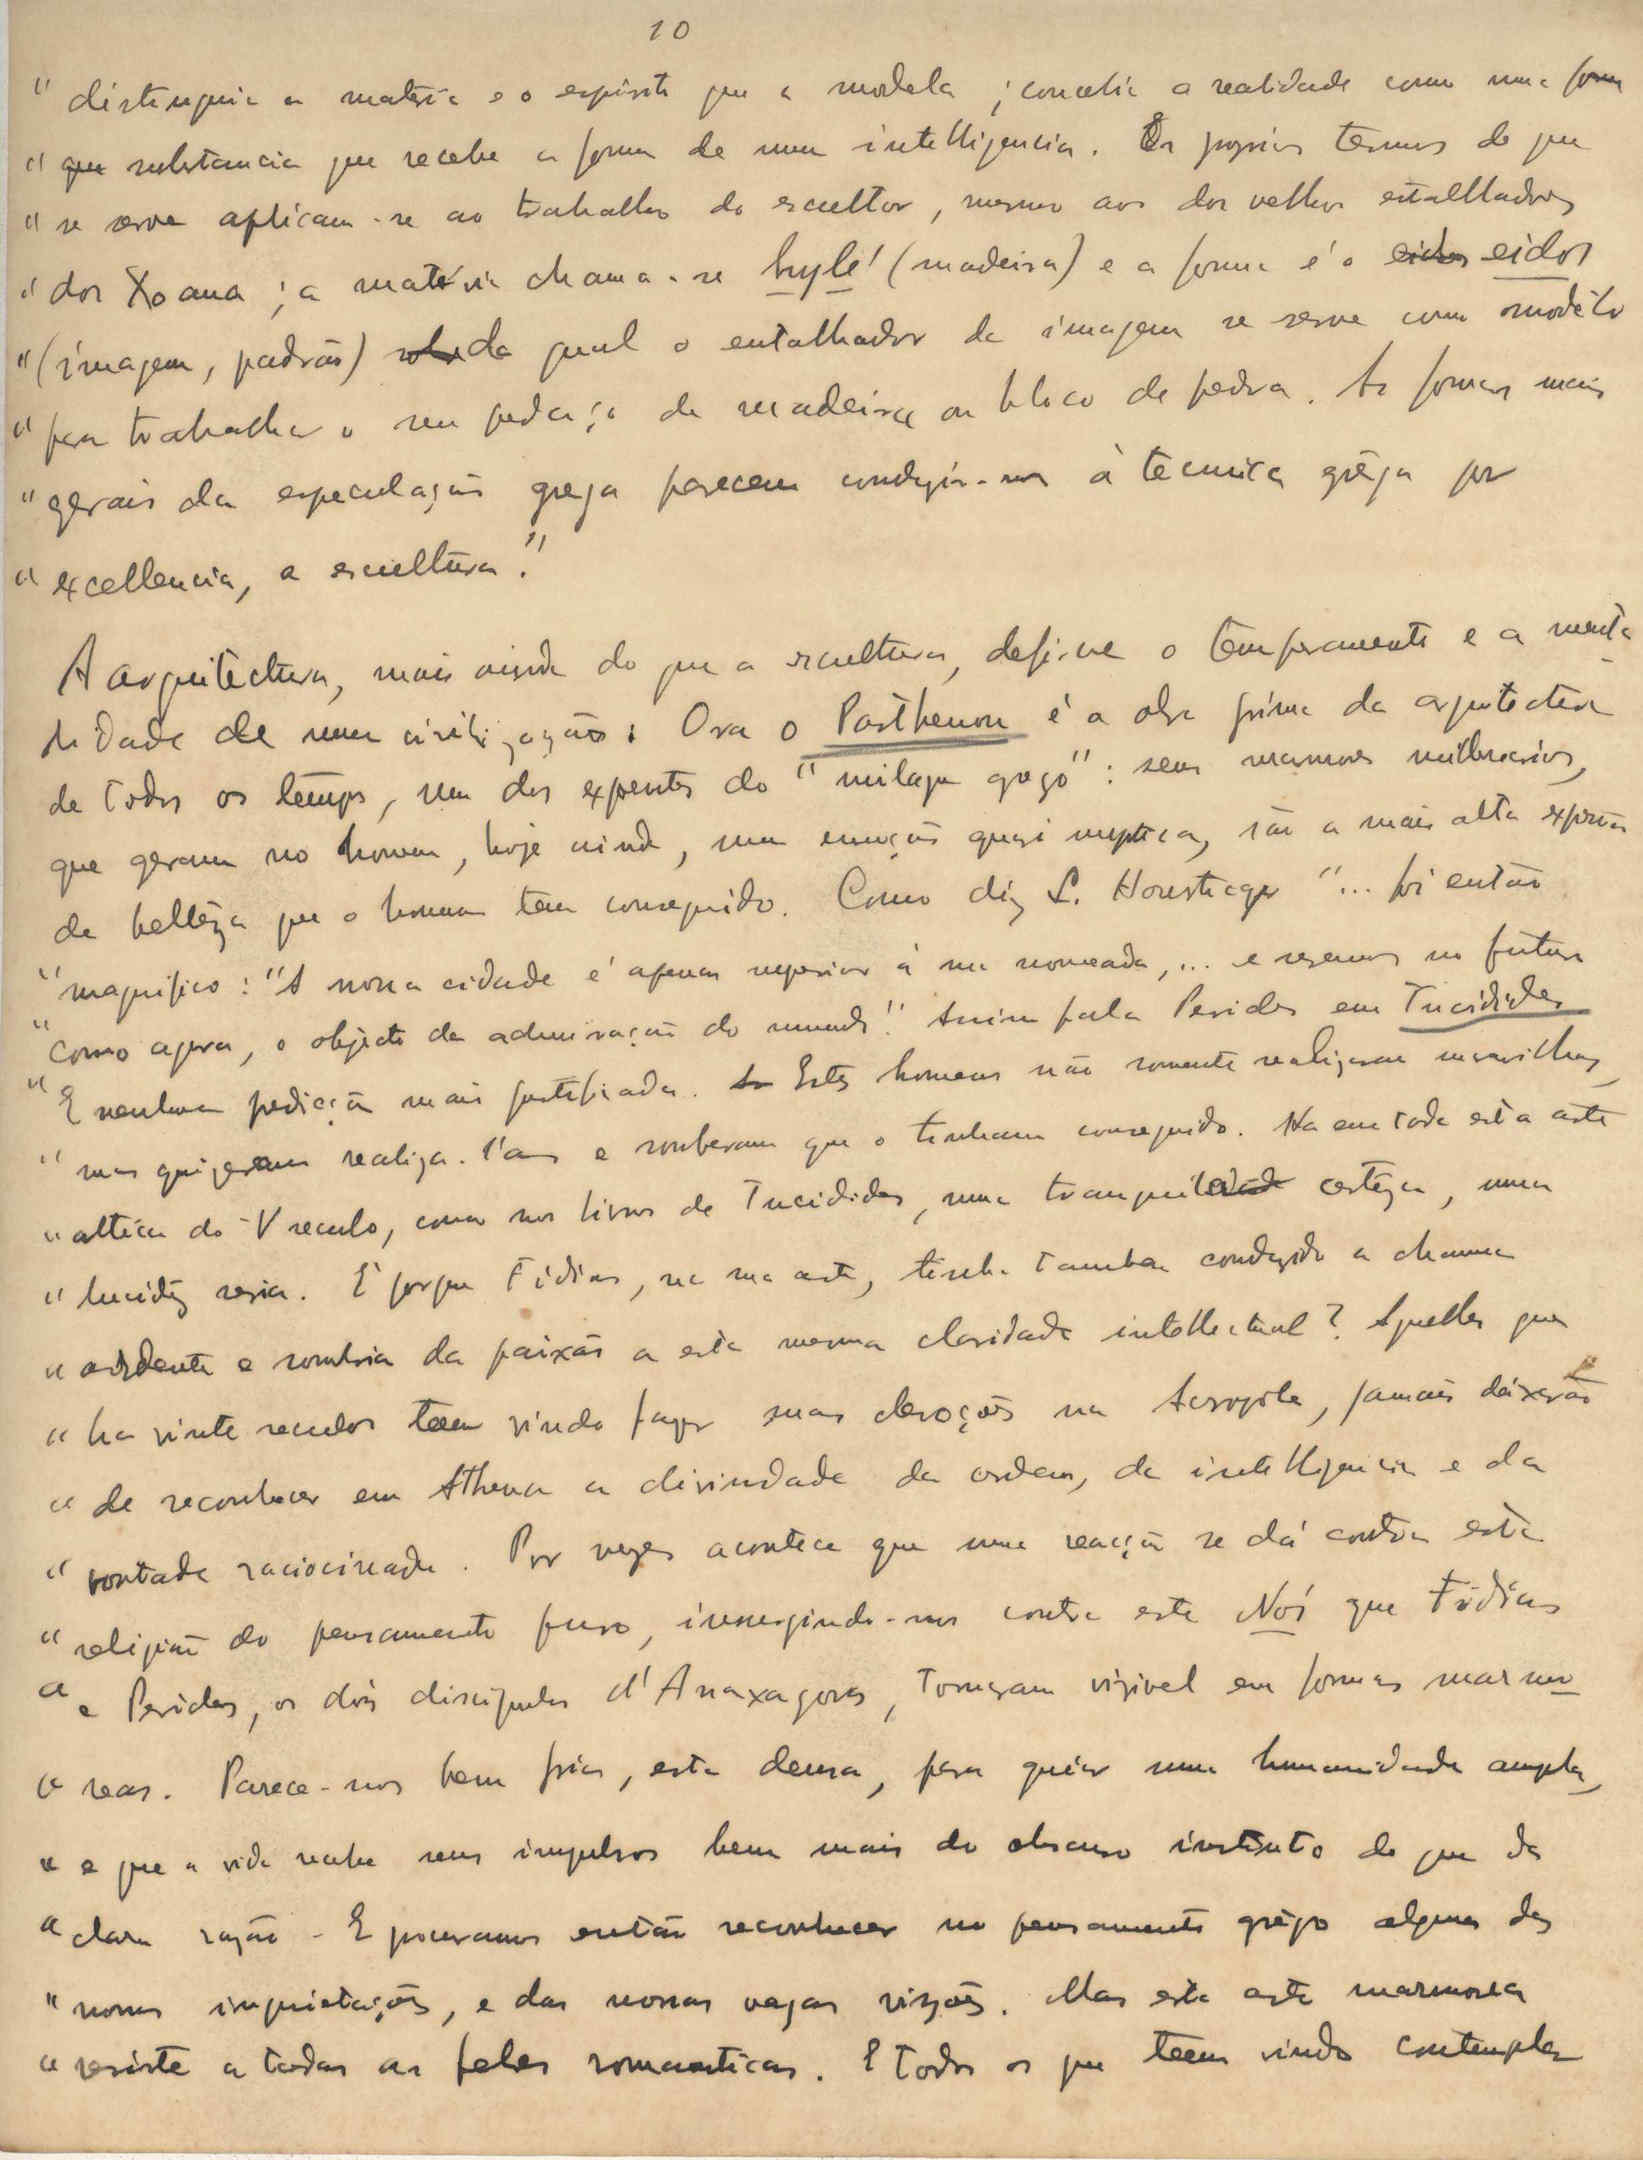 10
" distinguia a materia e o espirito que a modela ; concebia a realidade como uma forma
" que substancia que recebe a forma de uma intelligencia. Os proprios termos de que
" se serve aplicam-se ao trabalho do escultor, mesmo aos dos velhos entalhadores
" dos Xoana ; a materia chama-se hylé (madeira) e a forma é o eidos eidos
" (imagem, padrão) da qual o entalhador da imagem se serve como modelo
" para trabalhar o seu pedaço de madeira ou bloco de pedra. As formas mais
" gerais da especulação grega parecem conduzir-nos á técnica grêga por
" excellencia, a escultura."
A arquitectura, mais ainda do que a escultura, define o temperamento e a menta
lidade de uma civilização: Ora o Parthenon é a obra prima da arquitectura
de todos os tempos, um dos expoentes do "milagre grego" : seus marmores millenarios,
que geram no homem, hoje ainda, uma emoção quasi mystica, são a mais alta expressão
de belleza que o homem tem conseguido. Como diz L. Hourticq "... foi então
" magnifico : "A nossa cidade é apenas superior á sua nomeada, ... e seremos no futuro
" como agora, o objecto da admiração do mundo." Assim fala Pericles em Tucidides
" E nenhuma predicção mais justificada. Estes homens não somente realizaram maravilhas,
" mas quizeram realiza-l'as e souberam que o tinham conseguido. Ha em toda esta arte
" attica do V seculo, como nos livros de Tucidides, uma tranquila certeza, uma
" lucidez séria. É porque Fidias, na sua arte, tinha tambem conduzido a chamma
" ardente e sombria da paixão a esta mesma claridade intellectual? Aquelles que
" ha vinte seculos teem vindo fazer suas devoções na Acropole, jamais deixarão
" de reconhecer em Athena a divindade da ordem, da intelligencia e da
" vontade raciocinada. Por vezes acontece que uma reacção se dá contra esta
" religião do pensamento puro, insurgindo-nos contra este Noús que Fidias
" e Pericles, os dois discipulos d'Anaxagoras, tornaram visivel em formas marmo-
" reas. Parece-nos bem fria, esta deusa, para guiar uma humanidade ampla,
" e que a vida recebe seus impulsos bem mais do obscuro instinto do que da
" clara razão - E procuramos então reconhecer no pensamento grêgo algumas das
" nossas inquietações, e das nossas vagas visões. Mas esta arte marmorea
" resiste a todas as febres romanticas. E todos os que teem vindo contemplar